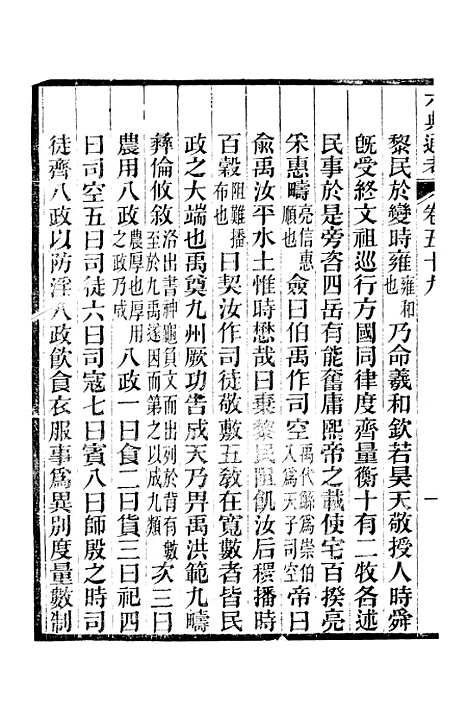 六典通考 卷五十九 一
黎民於變時雍雍和也乃命羲和欽若昊天敬授人時舜
旣受終文祖巡行方國同律度齊量衡十有二牧各述
民事於是旁咨四岳有能奮庸熙帝之載使宅百揆亮
采惠疇亮信惠順也僉曰伯禹作司空禹代鯀爲崇伯入爲天子司空帝曰
俞禹汝平水土惟時懋哉曰棄黎民阻飢汝后稷播時
百穀阻難播布也曰契汝作司徒敬敷五敎在寬數者皆民
政之大端也禹奠九州厥功吿成天乃畀禹洪範九疇
彝倫攸敘洛出書神龜負文而出列於背有數至於九禹遂因而第之以成九類次三曰
農用八政農厚也厚用之政乃成八政一曰食二曰貨三曰祀四
曰司空五曰司徒六曰司寇七曰賓八曰師殷之時司
徒齊八政以防淫八政飮食衣服事爲異別度量數制